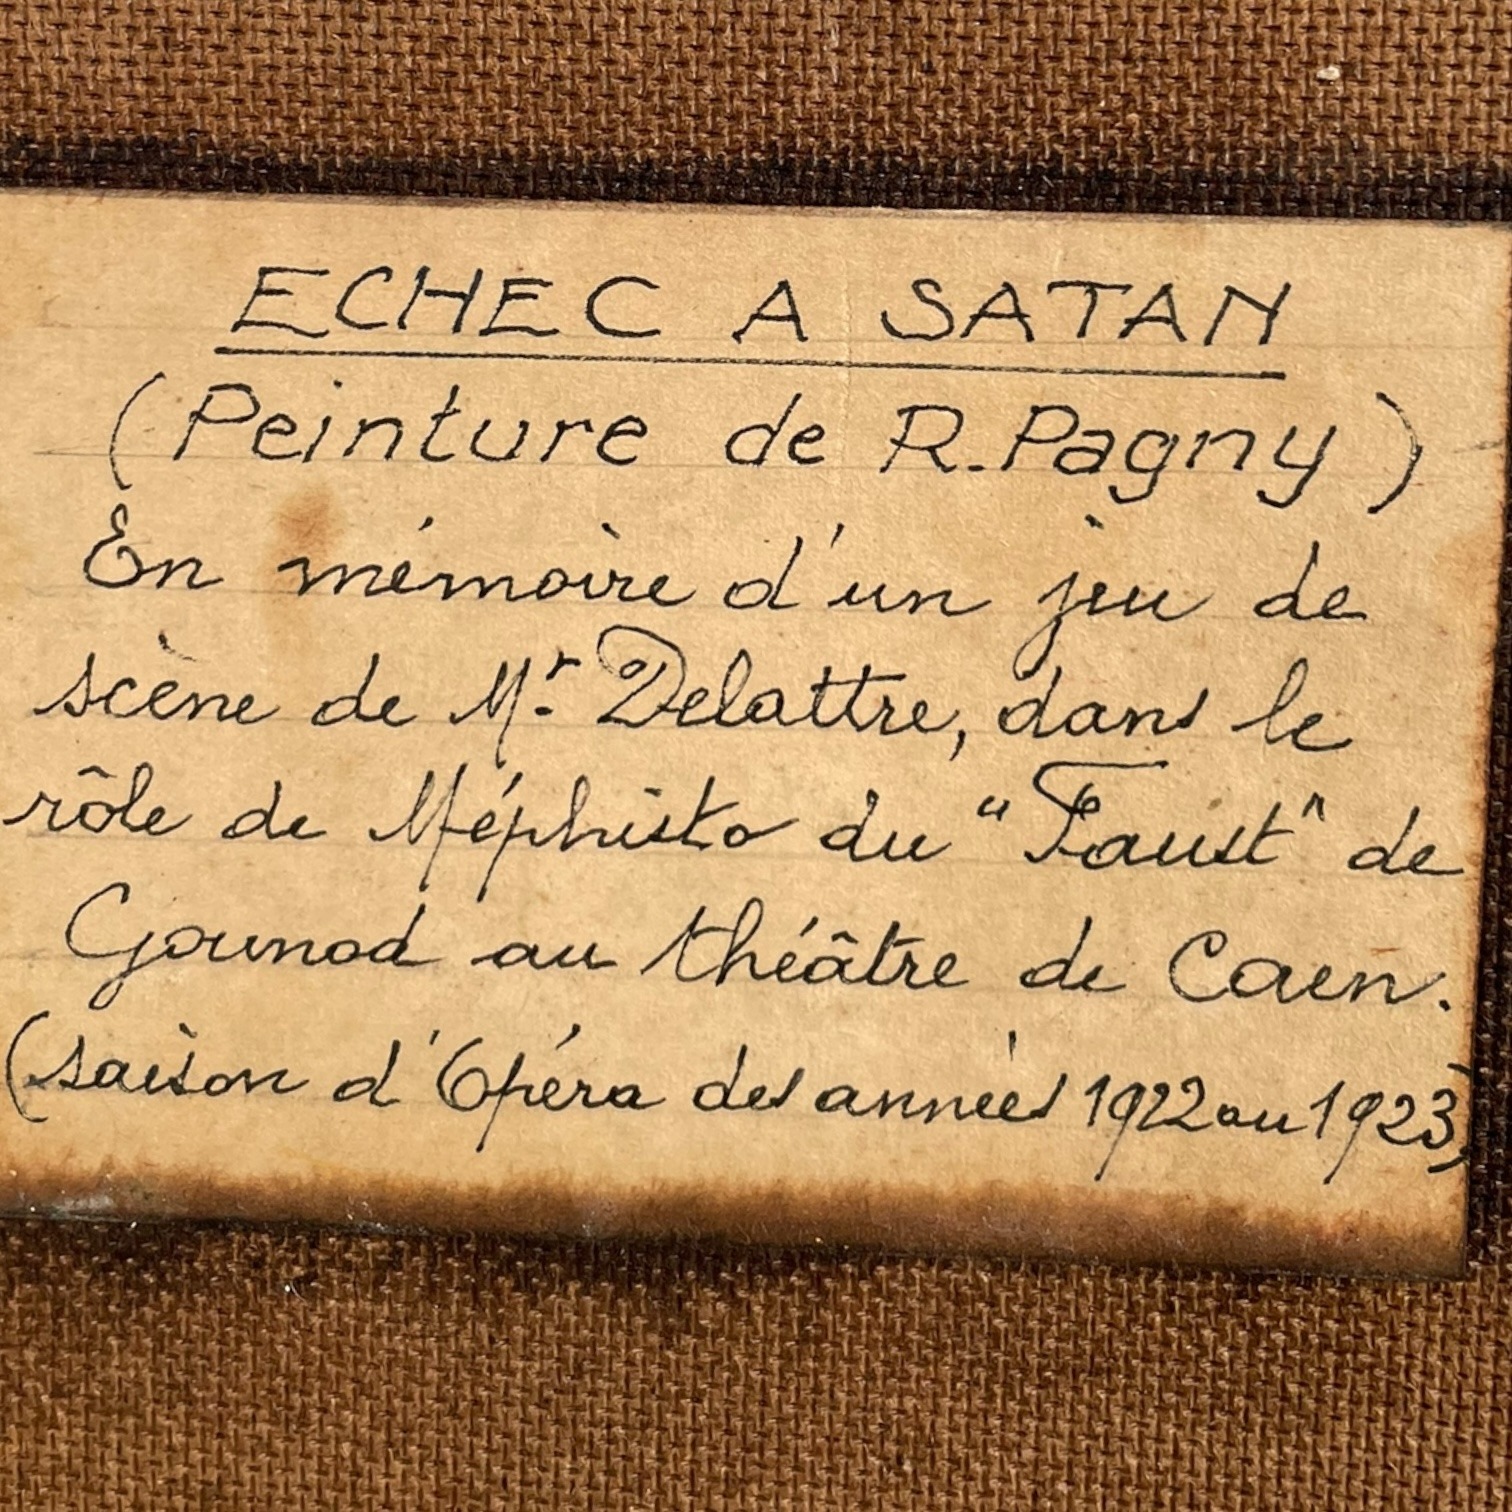 ECHEC A SATAN
(Peinture de R. Pagny)
En mémoire d'un jeu de
scène de Mr. Delattre, dans le
rôle de Méphisto du "Faust" de
Gounod au théâtre de Caen.
(saison d'Opéra des années 1922 ou 1923)